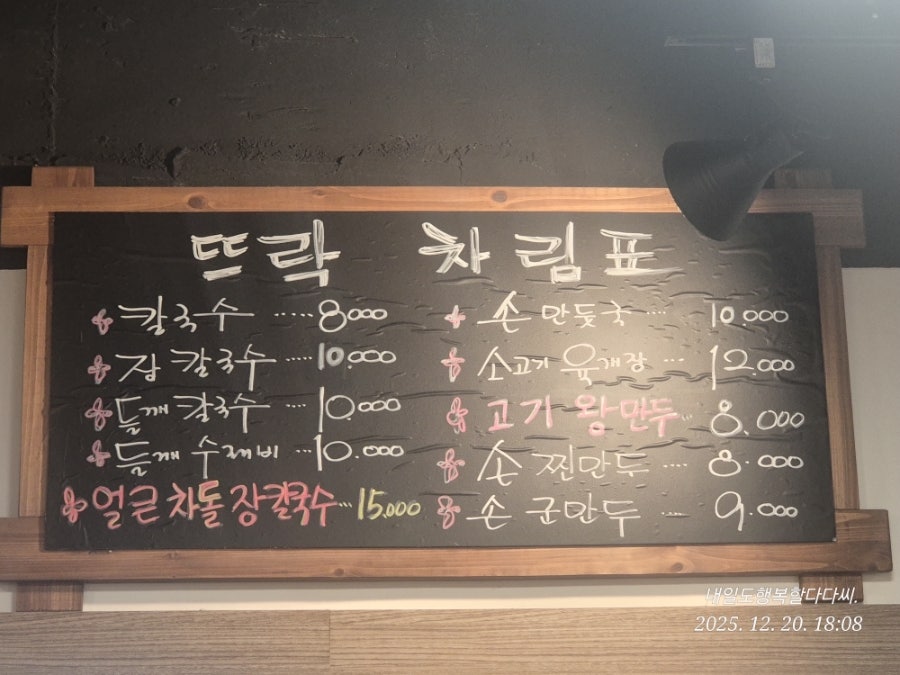 뜨락 차림표
칼국수 ····· 8000
장칼국수 ···· 10.000
들깨 칼국수 ··· 10.000
들깨 수재비 ··· 10.000
얼큰 차돌 장칼국수 ··· 15.000
손 만둣국 ···· 10.000
소고기 육개장 ··· 12.000
고기 왕만두 ··· 8.000
손 찐만두 ···· 8.000
손 군만두 ····· 9.000
내일도행복할다다씨.
2025. 12. 20. 18:08